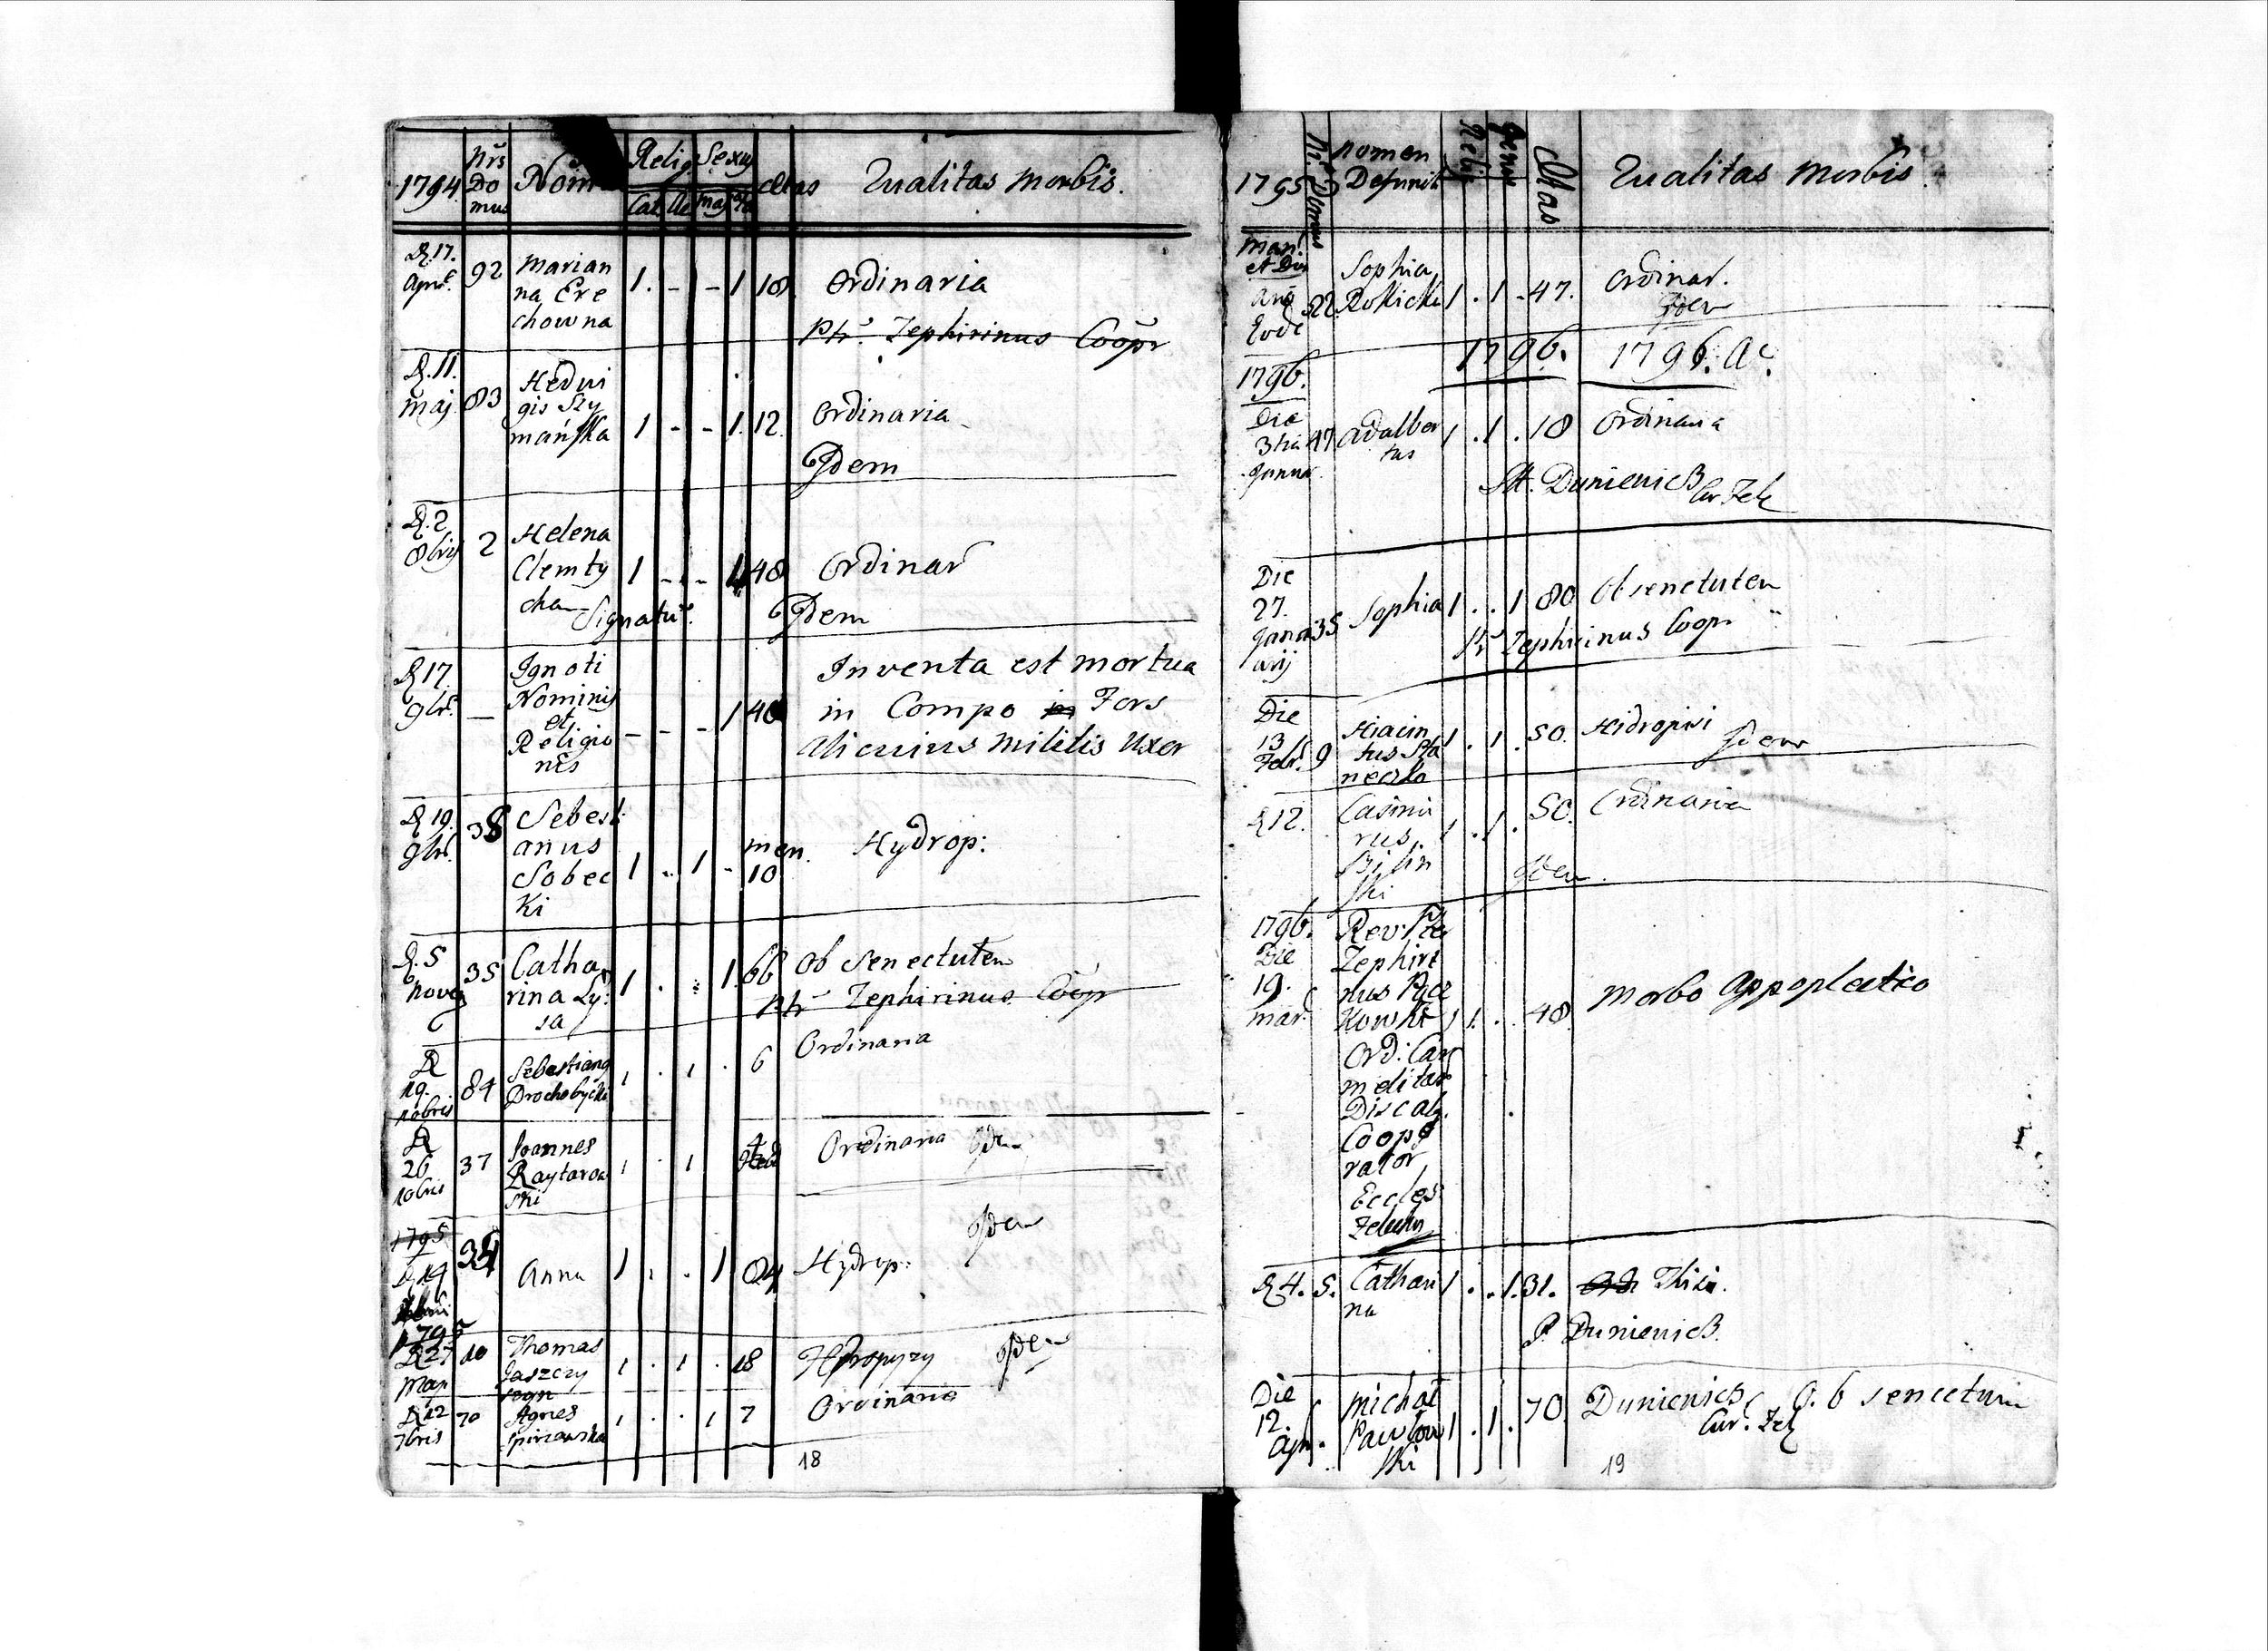 1794. Nrs Do mus Nom Relig. Sexus Ætas Qualitas Morbis.
Cat. Mas
D. 17. Apr. 92 Marian
na Ere
chowna 1. - - 1 18. Ordinaria
Ptr. Zephirinus Coopr
D. 11. Maj. 83 Hedui
gis Szy
mańska 1 - - 1. 12. Ordinaria
Idem
D. 2 8bris 2 Helena
Clemty
cha 1 - - 48 Ordinar
Signatur. Idem
D 17. 9br. — Ignoti
Nominis
et
Religio
nis - - - 1 40 Inventa est mortua
in Compo Fors
alicuius militis Uxor
D 19. 9br. 38 Sebesti
anus
Sobec
ki 1 .. 1 - men. 10 Hydrop:
D. 5 35 Catha
rina Ly:
sa 1 . : 1. 66 Ob Senectutem
Ptr Zephirinus Coopr
D 19. 10bris 84 Sebastianus
Drochobycki 1 . 1 . 6 Ordinaria
D 26 10bris 37 Joannes
Raytarow
ski 1 . 1 Ordinaria Idem
1795
34 Anna 1 . . 1 Hydrop: Idem
1795
D 27 Mar 10 Thomas
Jaszczy
szyn 1 . 1 . 18 Idem
D 12 7bris 70 Agnes 1 . . 1 7 Ordinaria
18
1795 Nr. Domus Nomen
Defuncti Relig. Genus Ætas Qualitas Morbis
et Die
Eode 22. Sophia
Rokicka 1 . 1 - 47. Ordinar.
Idem
1796. 1796. Ac.
1796.
Die
3tia
Janua. 47 Adalber
tus 1 . 1 . 18 Ordinaria
Duniewicz Cur. Zel
Die
27.
Janu
arij 35 Sophia 1 . . 1 80 Ob senectutem
Pr Zephirinus Coopr
Die
13
Febr. 9 Hiacin
tus Sta
neczko 1 . 1 . 50. Hidropisi Idem
D 12. Casimi
rus
Bilin
ski 1 . 1 . 50. Ordinaria
Idem.
1796.
Die
19.
Mar. Rev: Pter
Zephiri
nus Pącz
kowski 1 1. . 48. Morbo Appoplectico
Ord: Car
melitar
Discalz.
Coope
rator
Eccles
D 4. 5. Cathari
na 1 . . 1. 31. Thisi.
P. Duniewicz.
Die
12.
Apr. Michał
Pawłow
ski 1 . 1 . 70. Duniewicz Ob senectum
Cur. Zel
19